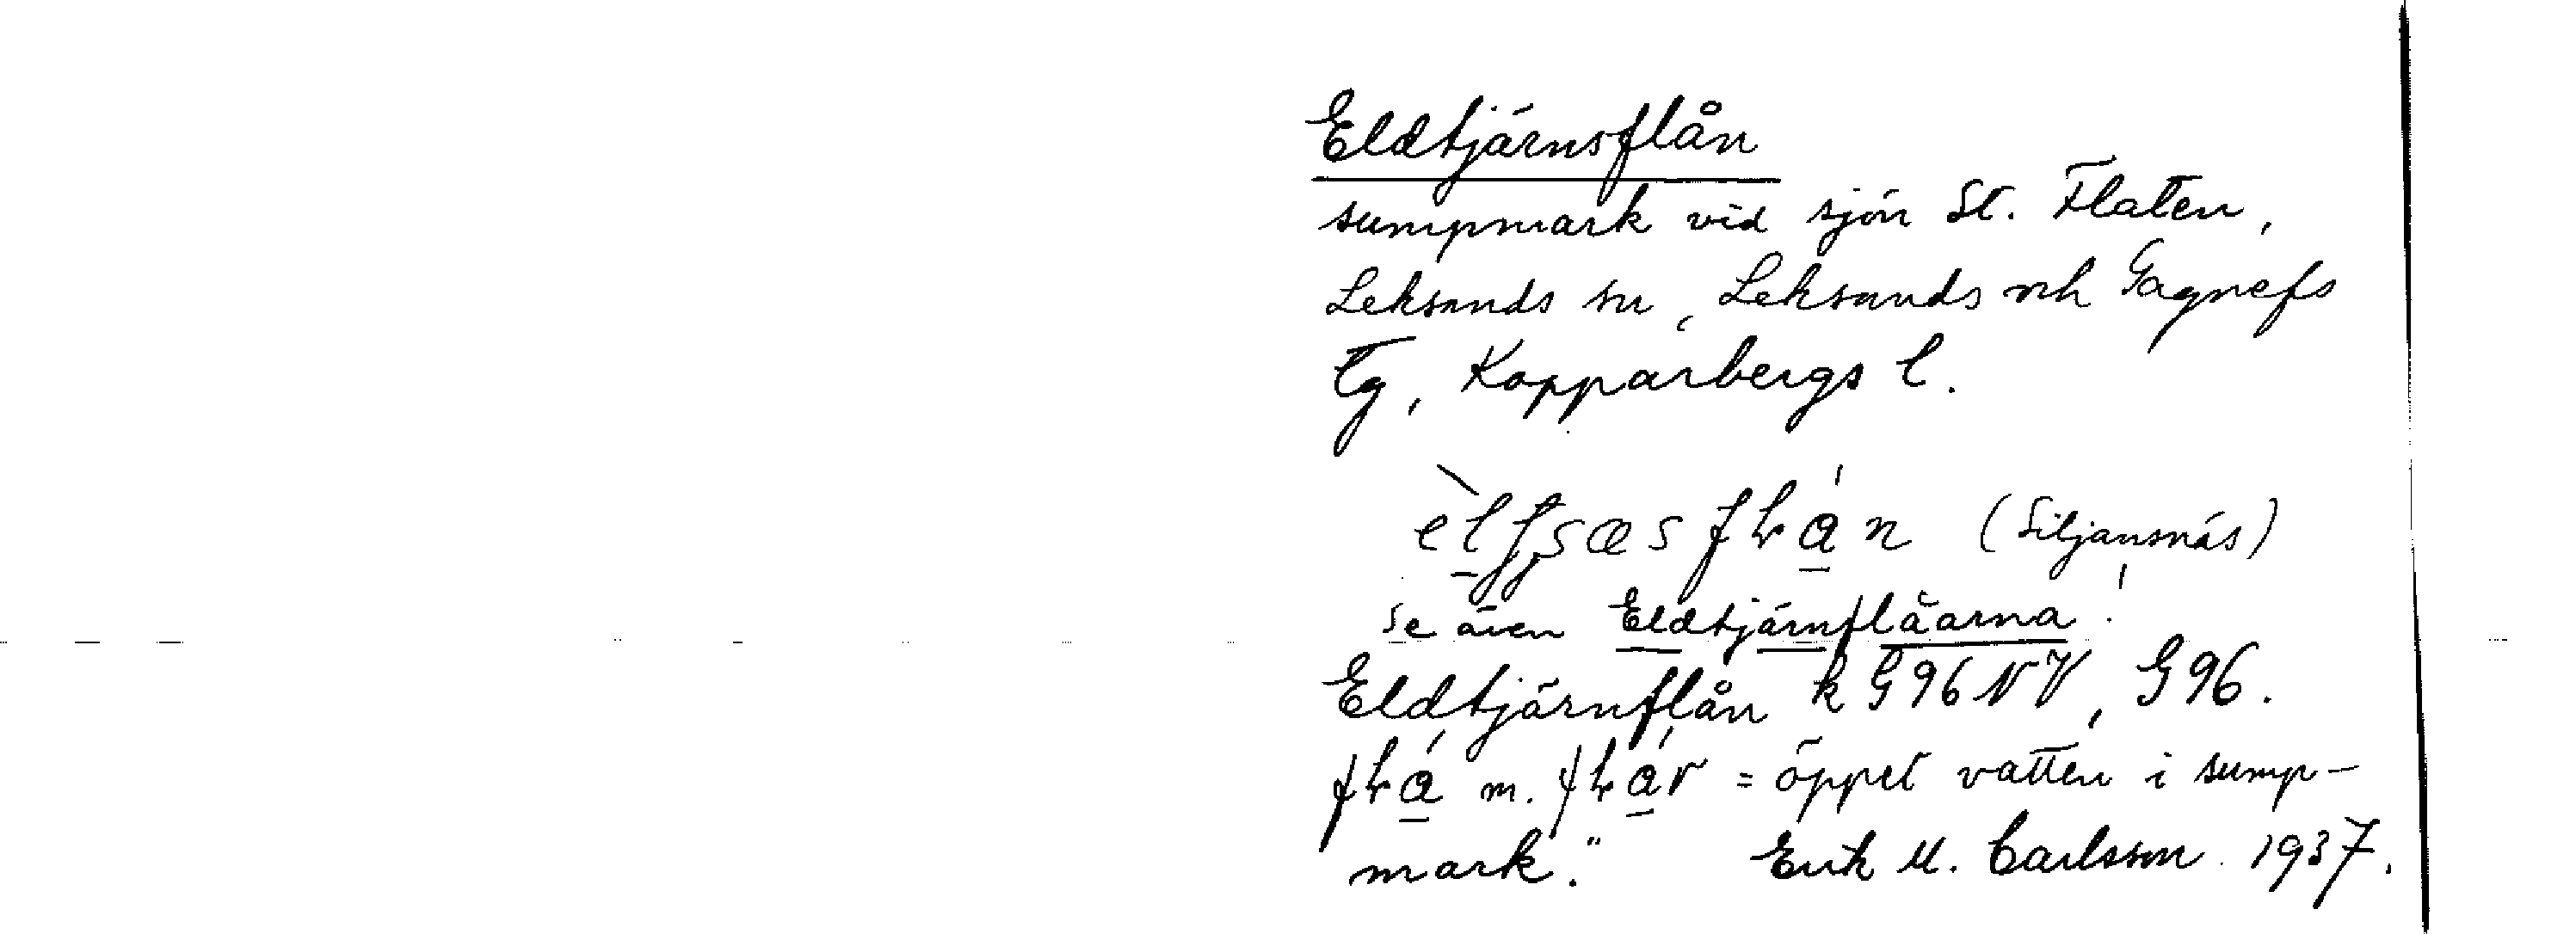 Eldtjärnsflån
sumpmark vid sjön St. Flaten,
Leksands sn, Leksands och Gagnefs
tg, Kopparbergs l.
(Siljansnäs)
se även Eldtjärnflåarna!
Eldtjärnflån k G96NV, G96.
m. = öppet vatten i sump-
mark." Erik M. Carlsson 1937.